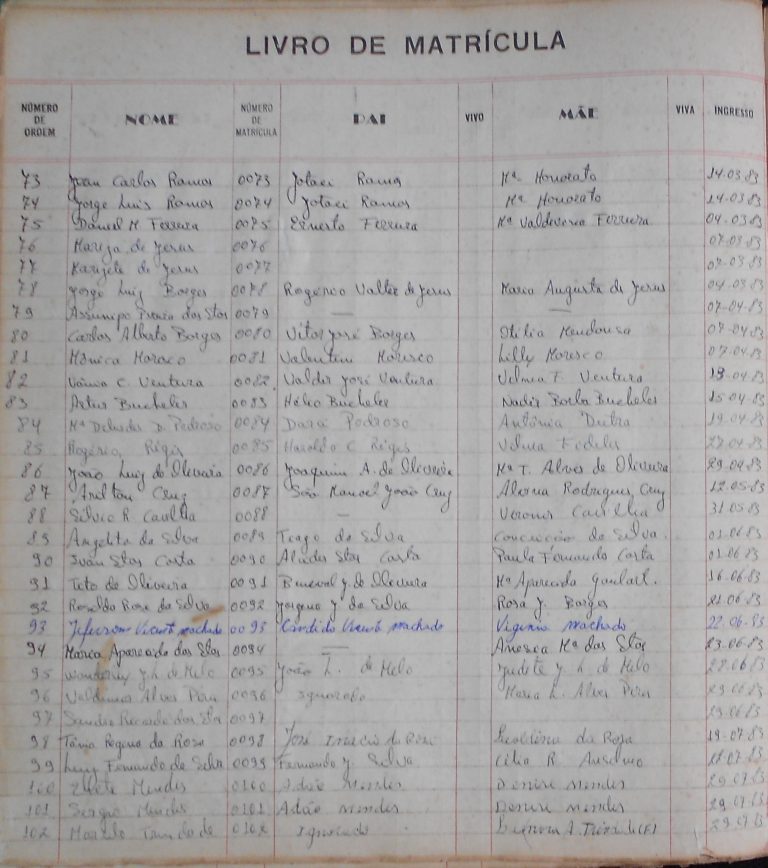 LIVRO DE MATRÍCULA
NÚMERO DE ORDEM NOME NÚMERO DE MATRÍCULA PAI VIVO MÃE VIVA INGRESSO
73 Juan Carlos Ramos 0073 Jotaci Ramos Mª Honorato 14-03-83
74 Jorge Luis Ramos 0074 Jotaci Ramos Mª Honorato 14-03-83
75 Daniel M Ferreira 0075 Ernesto Ferreira Mª Ferreira 04-03-83
76 de Jesus 0076 07-03-83
77 de Jesus 0077 07-03-83
78 Jorge Luiz Borges 0078 Rogério Valter de Jesus Augusta de Jesus 04-03-83
79 dos Stos 0079 — — 07-04-83
80 Carlos Alberto Borges 0080 Vitor José Borges Otilia Mendonsa 07-04-83
81 Mônica Moresco 0081 Valentim Moresco Lilly Moresco 07-04-83
82 Vânia C. Ventura 0082 Valdir José Ventura Velma F. Ventura 13-04-83
83 Artur Bucheler 0083 Hélio Bucheler Nadir Borba Bucheler 15-04-83
84 Mª D. Pedroso 0084 Pedroso Antônia Dutra 19-04-83
85 Rogério Régis 0085 Haroldo C Régis Velma Fidelis 27-04-83
86 João Luiz de Oliveira 0086 Joaquim A. de Oliveira Mª T. Alves de Oliveira 29-04-83
87 Cruz 0087 São Manoel João Cruz Rodrigues Cruz 12-05-83
88 Silvio R 0088 — 31-05-83
89 Angelita da Silva 0089 Tiago da Silva Conceição da Silva. 01-06-83
90 Ivan Stos Costa 0090 Alcides Stos Costa Paula Fernando Costa 01-06-83
91 Tito de Oliveira 0091 Beneval J. de Oliveira Mª Aparecida Goulart. 16-06-83
92 Ronaldo Rosa da Silva 0092 J da Silva Rosa J. Borges 21-06-83
93 Jeferson Vicente machado 0093 Candido Vicente machado Vigenia machado 22-06-83
94 Aparecida dos Stos 0094 — Mª dos Stos 23-06-83
95 Wanderley J. L. de Melo 0095 João L. de Melo Judete J L de Melo 28-06-83
96 Alves Pires 0096 Ignorado Maria L. Alves Pires 29-06-83
97 Sandra Ricardo dos Stos 0097 29-06-83
98 Tânia Regina da Rosa 0098 José Inacio da Rosa da Rosa 19-07-83
99 Luiz Fernando da Silva 0099 Fernando J Silva Célia R. Anselmo
100 Elizete Mendes 0100 Adão Mendes Denise Mendes 29-07-83
101 Sergio Mendes 0101 Adão Mendes Denise Mendes 29-07-83
102 Marcelo 0102 Ignorado 29-07-83